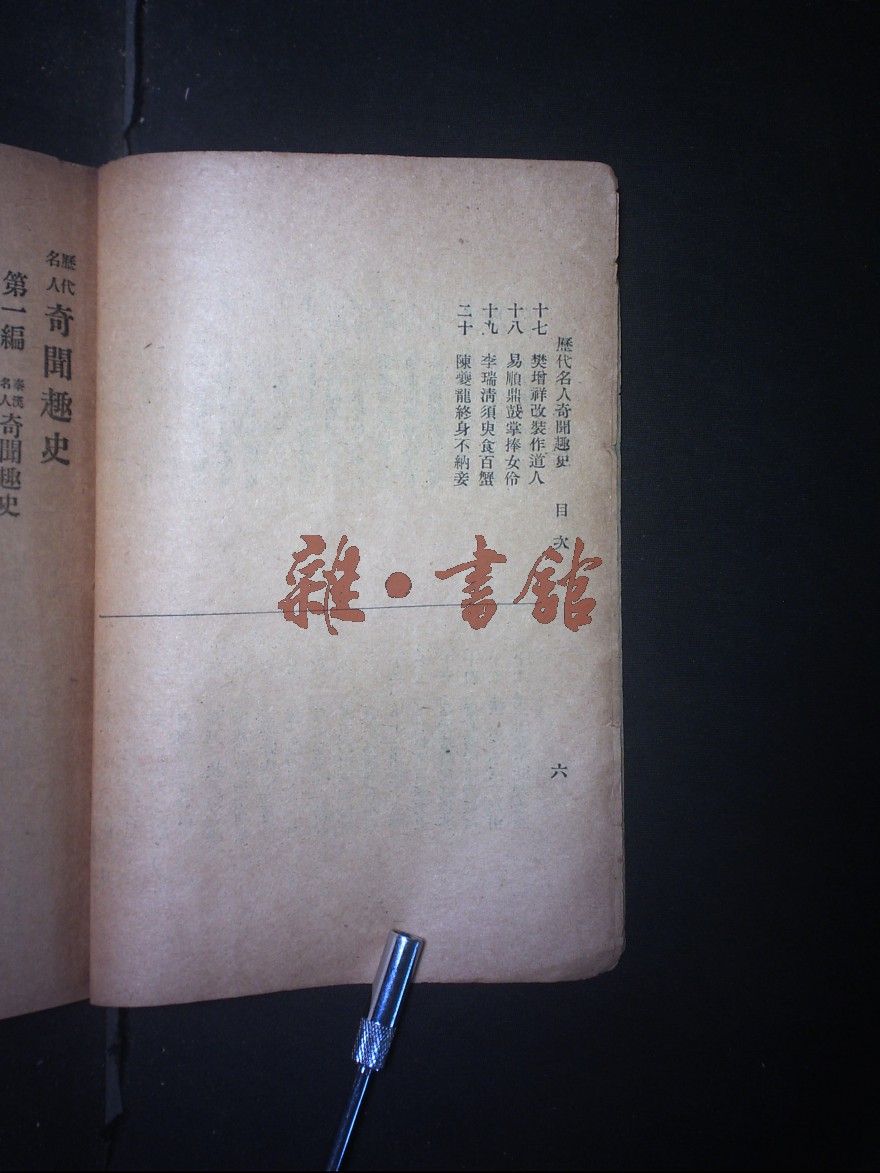 歷代名人奇聞趣史　目次　六
十七　樊增祥改裝作道人
十八　易順鼎鼓掌捧女伶
十九　李瑞淸須臾食百蟹
二十　陳夔龍終身不納妾
歷代名人奇聞趣史
第一編　秦漢名人奇聞趣史
雜·書館